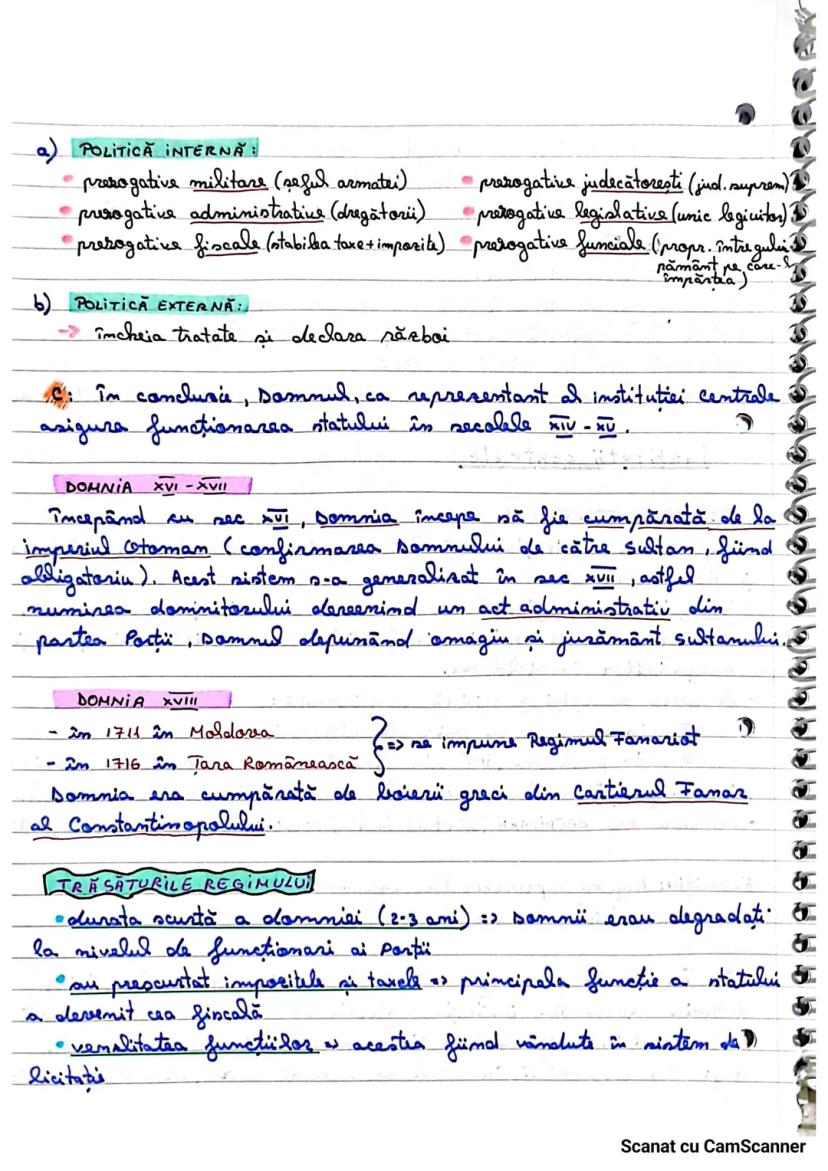 a) POLITICĂ INTERNĂ:
• prerogative militare (șeful armatei)
• prerogative judecătorești (jud. suprem)
• prerogative administrative (dregătorii)
• prerogative legislative (unic legiuitor)
• prerogative fiscale (stabilea taxe + impozite)
• prerogative funciale (propr. întregului
pământ pe care-l
împărțea)
b) POLITICĂ EXTERNĂ:
→ încheia tratate și declara război
C: În concluzie, Domnul, ca reprezentant al instituției centrale
asigura funcționarea statului în secolele XIV - XV.
DOMNIA XVI - XVII
Începând cu sec XVI, Domnia începe să fie cumpărată de la
imperiul Otoman (confirmarea Domnului de către Sultan, fiind
obligatoriu). Acest sistem s-a generalizat în sec XVII, astfel
numirea domnitorului devenind un act administrativ din
partea Porții, Domnul depunând omagiu și jurământ Sultanului.
DOMNIA XVIII
- în 1711 în Moldova
- în 1716 în Țara Românească
=> se impune Regimul Fanariot
Domnia era cumpărată de boierii greci din Cartierul Fanar
al Constantinopolului.
TRĂSĂTURILE REGIMULUI
• durata scurtă a domniei (2-3 ani) => Domnii erau degradați
la nivelul de funcționari ai Porții
• au crescut impozitele și taxele => principala funcție a statului
a devenit cea fiscală
• venalitatea funcțiilor => acestea fiind vândute în sistem de
licitație
Scanat cu CamScanner